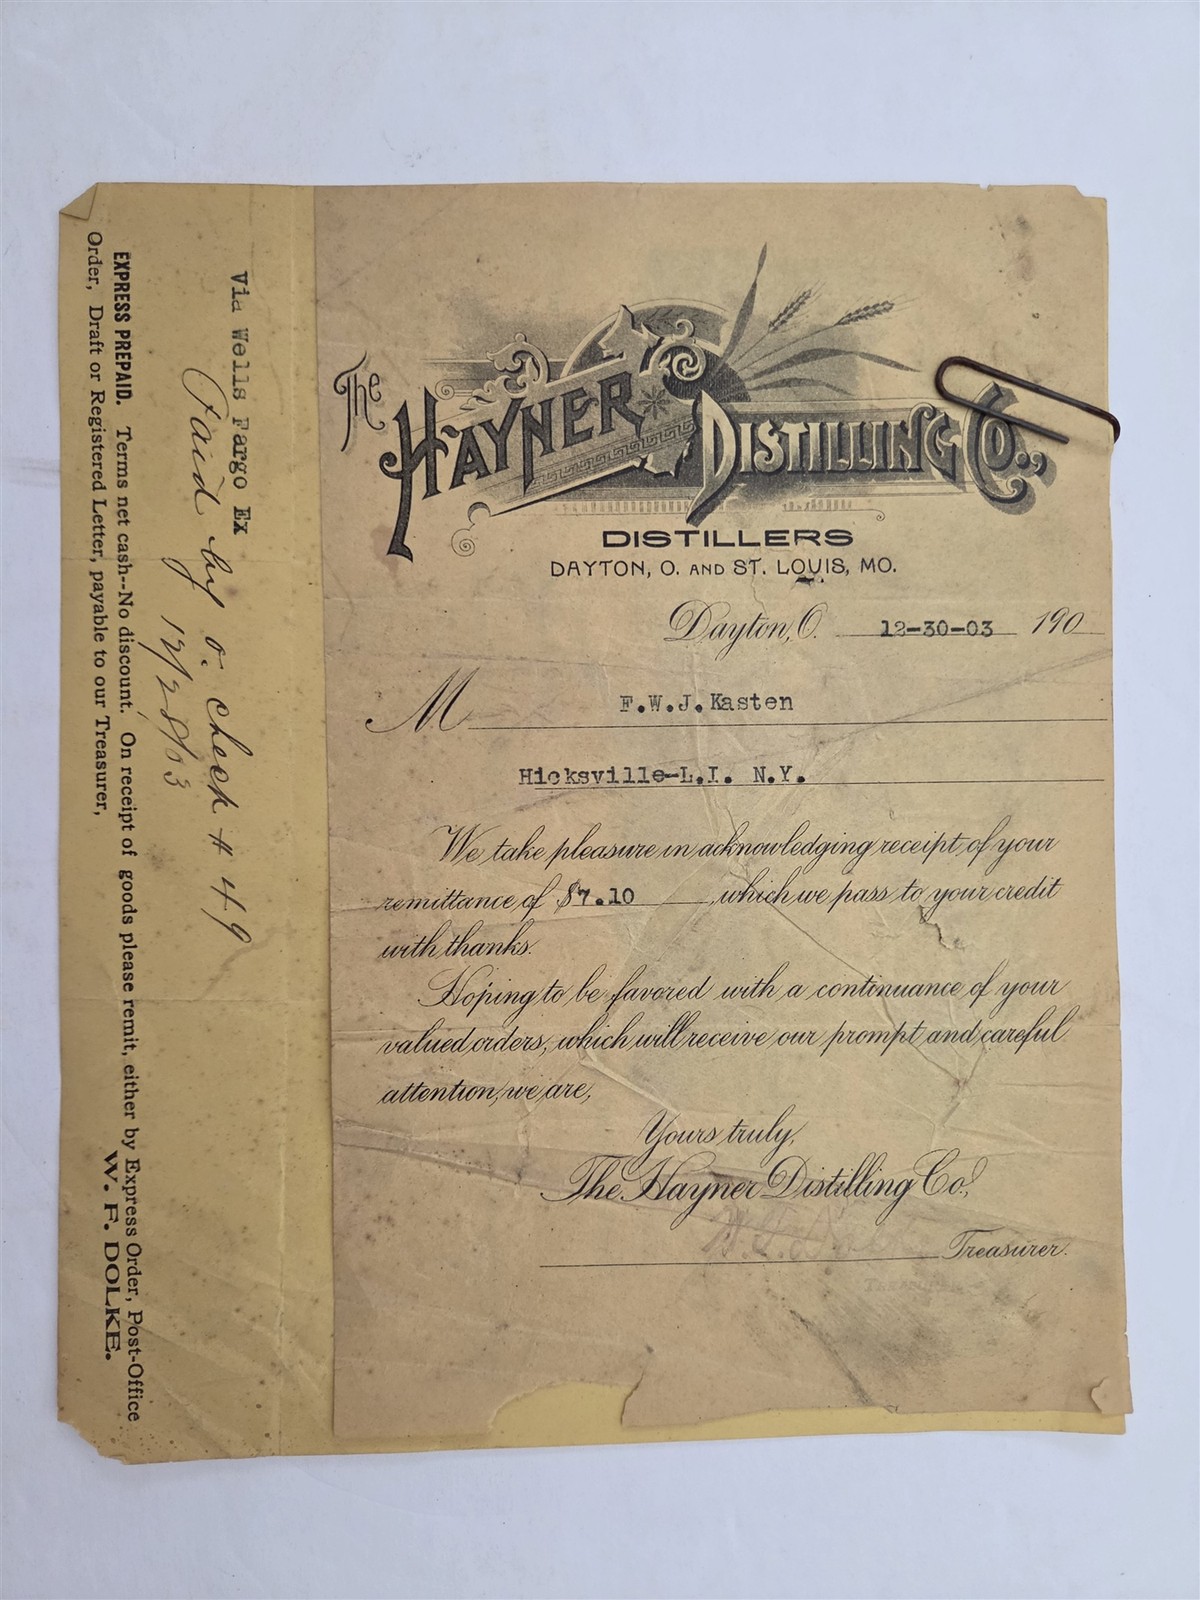 The HAYNER DISTILLING CO.,
DISTILLERS
DAYTON, O. AND ST. LOUIS, MO.
Dayton, O. 12-30-03 190
M F.W.J.Kasten
Hicksville-L.I. N.Y.
We take pleasure in acknowledging receipt of your
remittance of $7.10 , which we pass to your credit
with thanks.
Hoping to be favored with a continuance of your
valued orders, which will receive our prompt and careful
attention, we are,
Yours truly,
The Hayner Distilling Co.,
Treasurer.
Via Wells Fargo Ex
Paid by o. check # 49
12/28/03
EXPRESS PREPAID. Terms net cash--No discount. On receipt of goods please remit, either by Express Order, Post-Office
Order, Draft or Registered Letter, payable to our Treasurer,
W. F. DOLKE.